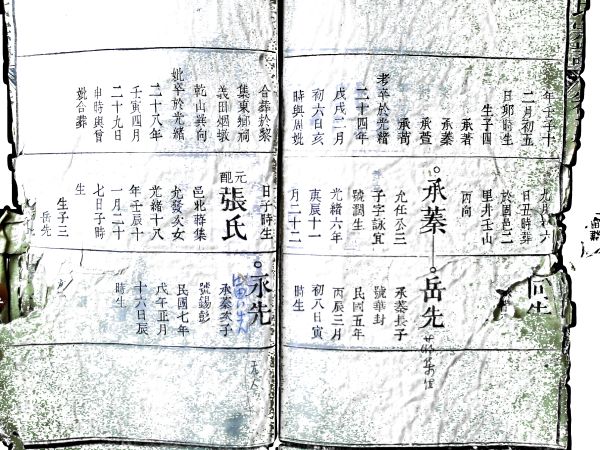 年壬子十
二月初五
日卯時生
生子四
承著
承蓁
承萱
承荀
考卒於光緒
二十四年
戊戌二月
初六日亥
時與周妣
合葬於黎
集東鄉祠
義田烟墩
乾山巽向
妣卒於光緒
二十八年
壬寅四月
二十九日
申時與曾
妣合葬
日丑時葬
里井壬山
丙向
承蓁
允任公三
子字詠宜
號潤生
光緒六年
庚辰十一
月二十二
日子時生
元配張氏
邑北蔣集
九發公女
光緒十八
年壬辰十
一月二十
七日子時
生
生子三
岳先
岳先
承蓁長子
號華封
民國五年
丙辰三月
初八日寅
時生
永先
承蓁次子
號錫彭
民國七年
戊午正月
十六日辰
時生